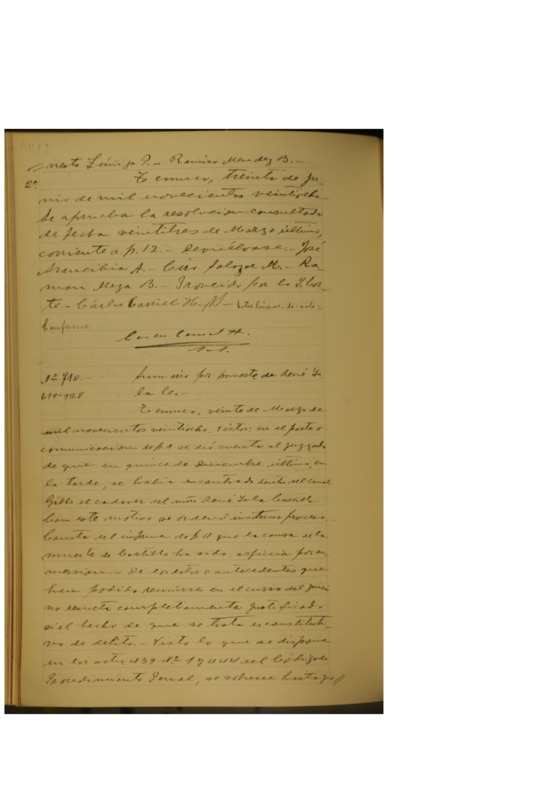 nesto Zúñiga P.- Ramiro Mendez B.-
2º. Temuco, treinta de Ju-
nio de mil novecientos veintiocho.-
Se aprueba la resolucion consultada
de fecha veintitres de Marzo último,
corriente a p. 12.- Devuélvase.- José
Arancibia A.- Ciro Salazar M.- Ra-
mon Meza B.- Proveido por la I. Cor-
te.- Carlos
Conforme.
Nº 710.- Sumario por muerte de René
Temuco, veinte de Marzo de
mil novecientos veintiocho. Vistos: en el parte o
comunicacion de p 1 se dió cuenta al juzgado
de que en quince de Diciembre último, en
la tarde, se habia encontrado dentro del canal
Gibbs el cadaver del niño René
Con este motivo se ordenó instruir proceso.
Consta del informe de p 11 que la causa de la
muerte de Castillo ha sido asfixia por in-
mersion.- De los datos o antecedentes que
han podido reunirse en el curso del juicio
no resulta completamente justificado
el hecho de que se trata es constituti-
vo de delito.- Visto lo que se dispone
en los arts 439 Nº 1 y 444 del Código de
Procedimiento Penal, se sobresee hasta que